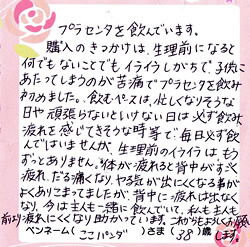 プラセンタを飲んでいます。
購入のきっかけは、生理前になると
何でもないことでもイライラしがちで、子供に
あたってしまうのが苦痛でプラセンタを飲み
初めました。飲むペースは、忙しくなりそうな
日や頑張らないといけない日は必ず飲み
疲れを感じてきそうな時等で毎日必ず飲
んではいませんが、生理前のイライラはもう
ずっとありません。体が疲れると背中がすぐ
疲れ、だる痛くなり、やる気が出にくくなる事が
よくありこまってましたが、背中に疲れは出なく
なり、今は主人も一緒に飲んでいて、私も主人も
前より疲れにくくなり助かっています。これからもよろしくお願
ペンネーム(ここパンダ)さま(38)歳 します。